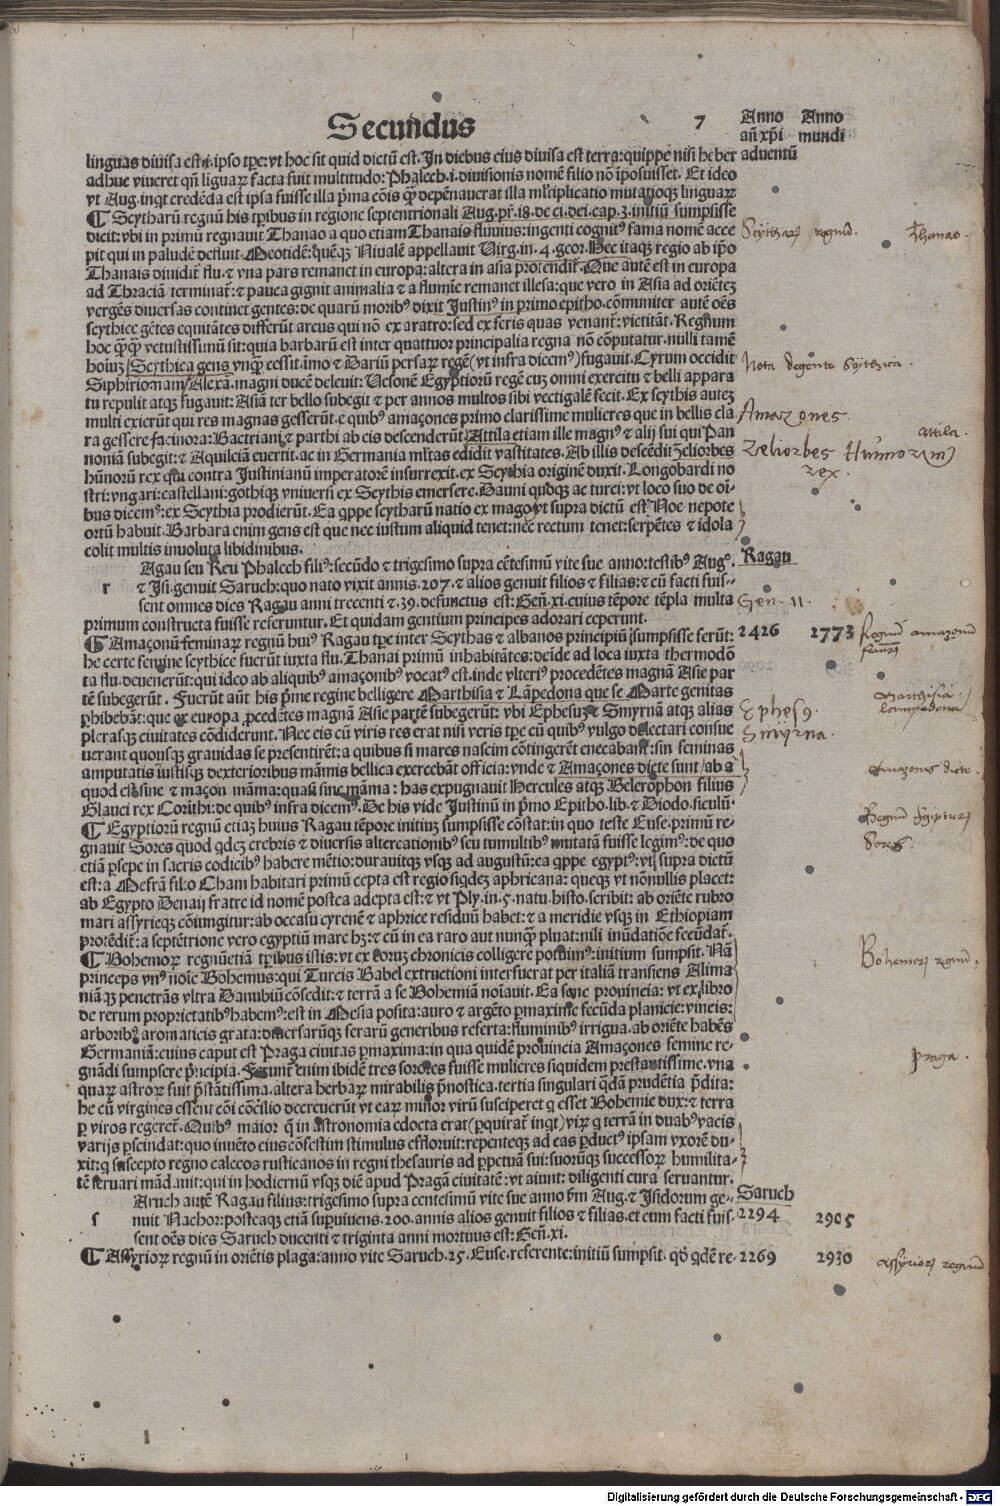 Secundus 7 Anno Anno
añ xp̄i mundi
aduentū
linguas diuisa est .i. ipso tp̄e: vt hoc sit quid dictū est. In diebus eius diuisa est terra: quippe nisi heber
adhuc viueret qn̄ liguaꝝ facta fuit multitudo: Phalech .i. diuisionis nomē filio nō iposuisset. Et ideo
vt Aug. inqt credēda est ipsa fuisse illa p̄ma cōis
¶ Scytharū regnū his tp̄ibus in regione septentrionali Aug. pr̄. 18. de ci. dei. cap. 3. initiū sumpsisse
dicit: vbi in primū regnauit Thanao a quo etiam Thanais fluuius: ingenti cognitꝰ fama nomē acce
pit qui in paludē defluit Meotidē: quēqꝫ Niualē appellauit Virg. in. 4. geor. Hec itaqꝫ regio ab ip̄o
Thanais diuidit̄ flu. ⁊ vna pars remanet in europa: altera in asia protendit̄. Que autē est in europa
ad Thraciā terminat̄: ⁊ pauca gignit animalia ⁊ a flumīe remanet illesa: que vero in Asia ad oriētez
vergēs diuersas continet gentes: de quarū moribꝰ dixit Justinꝰ in primo epitho. cōmuniter autē oēs
scythice gētes equitātes differūt arcus qui nō ex aratro: sed ex feris quas venant̄: victitāt. Regnum
hoc qꝫqꝫ vetustissimū sit: quia barbarū est inter quattuor principalia regna nō cōputatur. nulli tamē
hoiuꝫ Scythica gens vnqꝫ cessit. imo ⁊ Dariū persaꝝ regē (vt infra dicemꝰ) fugauit. Cyrum occidit
Siphirionam Alexā. magni ducē deleuit: Vesonē Egyptiorū regē cuꝫ omni exercitu ⁊ belli appara
tu repulit atqꝫ fugauit: Asiā ter bello subegit ⁊ per annos multos sibi vectigalē fecit. Ex scythis auteꝫ
multi exierūt qui res magnas gesserūt. e quibꝰ amaçones primo clarissime mulieres que in bellis cla
ra gessere facinora: Bactriani ⁊ parthi ab eis descenderūt Attila etiam ille magnꝰ ⁊ alij sui qui Pan
noniā subegit: ⁊ Aquileiā euertit. ac in Germania ml̄tas edidit vastitates. Ab illis descēdit Zeliorbes
hūnorū rex qui contra Justinianū imperatorē insurrexit. ex Scythia originē duxit. Longobardi no
stri: vngari: castellani: gothiqꝫ vniuersi ex Scythis emersere. Dauni quoqꝫ ac turci: vt loco suo de oī-
bus dicemꝰ: ex Scythia prodierūt. Ea qppe scytharū natio ex magog vt supra dictū est Noe nepote
ortū habuit. Barbara enim gens est que nec iustum aliquid tenet: nec rectum tenet: serpētes ⁊ idola
colit multis inuoluta libidinibus.
Agau seu Reu Phalech filiꝰ: secūdo ⁊ trigesimo supra cētesimū vite sue anno: testibꝰ Augꝰ. Ragau
r ⁊ Isi. genuit Saruch: quo nato vixit annis. 207. ⁊ alios genuit filios ⁊ filias: ⁊ cū facti fuis-
sent omnes dies Ragau anni trecenti ⁊. 39. defunctus est: Geñ. xi. cuius tēpore tēpla multa
primum constructa fuisse referuntur. Et quidam gentium principes adorari ceperunt.
¶ Amaçonū feminaꝝ regnū huiꝰ Ragau tp̄e inter Scythas ⁊ albanos principiū sumpsisse ferūt: 2426 1773
he certe femine scythice fuerūt iuxta flu. Thanai primū inhabitātes: deīde ad loca iuxta thermodō
ta flu. deuenerūt: qui ideo ab aliquibꝰ amaçonibꝰ vocatꝰ est. inde vlteriꝰ procedētes magnā Asie par
tē subegerūt. Fuerūt aūt his p̄me regine belligere Marthisia ⁊ Lāpedona que se Marte genitas
ꝑhibebāt: que ex europa ꝓcedētes magnā Asie partē subegerūt: vbi Ephesuꝫ ⁊ Smyrnā atqꝫ alias
plerasqꝫ ciuitates cōdiderunt. Nec eis cū viris res erat nisi veris tp̄e cū quibꝰ vulgo delectari consue
uerant quousqꝫ grauidas se presentirēt: a quibus si mares nascim cōtingerēt enecabant̄: sin feminas
amputatis iustisqꝫ dexterioribus māmis bellica exercebāt officia: vnde ⁊ Amaçones dicte sunt ab a
quod est sine ⁊ maçon māma: quasi sine māma: has expugnauit Hercules atqꝫ Belerophon filius
Glauci rex Corīthi: de quibꝰ infra dicemꝰ. De his vide Justinū in p̄mo Epitho. lib. ⁊ Diodo. siculū.
¶ Egyptiorū regnū etiaꝫ huius Ragau tēpore initiuꝫ sumpsisse cōstat: in quo teste Euse. primū re-
gnauit Sores quod qdeꝫ crebris ⁊ diuersis altercationibꝰ seu tumultibꝰ mutatā fuisse legimꝰ: de quo
etiā ꝑsepe in sacris codicibꝰ habere mētio: durauitqꝫ vsqꝫ ad augustū: ea qppe egyptꝰ: vti supra dictū
est: a Mefrā fil: o Cham habitari primū cepta est regio siqdeꝫ aphricana: queqꝫ vt nōnullis placet:
ab Egypto Denaij fratre id nomē postea adepta est: ⁊ vt Ply. in. 5. natu. histo. scribit: ab oriēte rubro
mari assyrieqꝫ cōiungitur: ab occasu cyrenē ⁊ aphrice residuū habet: ⁊ a meridie vsqꝫ in Ethiopiam
protēdit̄: a septētrione vero egyptiū mare hꝫ: ⁊ cū in ea raro aut nunqꝫ pluat: nili inūdatiōe fecūdat̄.
¶ Bohemoꝝ regnū etiā tp̄ibus istis: vt ex eoruꝫ chronicis colligere potuimꝰ: initium sumpsit. Nā
princeps vnꝰ noīe Bohemus: qui Turcis Babel extructioni interfuerat per italiā transiens Alima
niā qꝫ penetrās vltra Danubiū cōsedit: ⁊ terrā a se Bohemiā noīauit. Ea sane prouincia: vt ex libro
de rerum proprietatibꝰ habemꝰ: est in Mesia posita: auro ⁊ argēto ꝑmaxime fecūda planicie: vineis:
arboribꝰ aromaticis grata: diuersarūqꝫ ferarū generibus referta: fluminibꝰ irrigua. ab oriēte habēs
Germaniā: cuius caput est Praga ciuitas ꝑmaxima: in qua quidē prouincia Amaçones femine re-
gnādi sumpsere p̄ncipia. Ferunt enim ibidē tres sorores fuisse mulieres siquidem prestantissime. vna
quaꝝ astroꝝ fuit p̄stātissima. altera herbaꝝ mirabilis p̄nostica. tertia singulari qdā prudētia p̄dita:
he cū virgines essent cōi cōcilio decreuerūt vt eaꝝ minor virū susciperet q esset Bohemie dux: ⁊ terra
ꝑ viros regeret̄. Quibꝰ maior q̄ in astronomia edocta erat (ꝑquirat̄ inqt) vir q terrā in duabꝰ vacis
varijs ꝓscindat: quo inuēto eius cōfestim stimulus effloruit: repenteqꝫ ad eas ꝑductꝰ ipsam vxorē du-
xit: q suscepto regno calceos rusticanos in regni thesauris ad ꝑpetuā sui: suorūqꝫ successoꝝ humilita-
tē seruari mādauit: qui in hodiernū vsqꝫ diē apud Pragā ciuitatē: vt aiunt: diligenti cura seruantur.
Aruch autē Ragau filius: trigesimo supra centesimū vite sue anno ßm Aug. ⁊ Isidorum ge- Saruch
s nuit Nachor: posteaqꝫ etiā supuiuens. 200. annis alios genuit filios ⁊ filias. et cum facti fuis- 2294 2905
sent oēs dies Saruch ducenti ⁊ triginta anni mortuus est: Geñ. xi.
¶ Assyrioꝝ regnū in oriētis plaga: anno vite Saruch. 25. Euse. referente: initiū sumpsit. qd̄ qdē re- 2269 2930
Scytharū regnū.
Thanao.
Nota de gente Scythica.
Amazones.
Attila.
Zeliorbes Hunnorum
rex.
Gen. 11.
Regnū amazonū
Marthisia.
Lampedona
Ephesꝰ.
Smyrna.
Amazones dicte.
Regnū Egiptiorū
Sores.
Bohemorū regnū.
Praga.
Assyriorū regnū
Digitalisierung gefördert durch die Deutsche Forschungsgemeinschaft - DFG